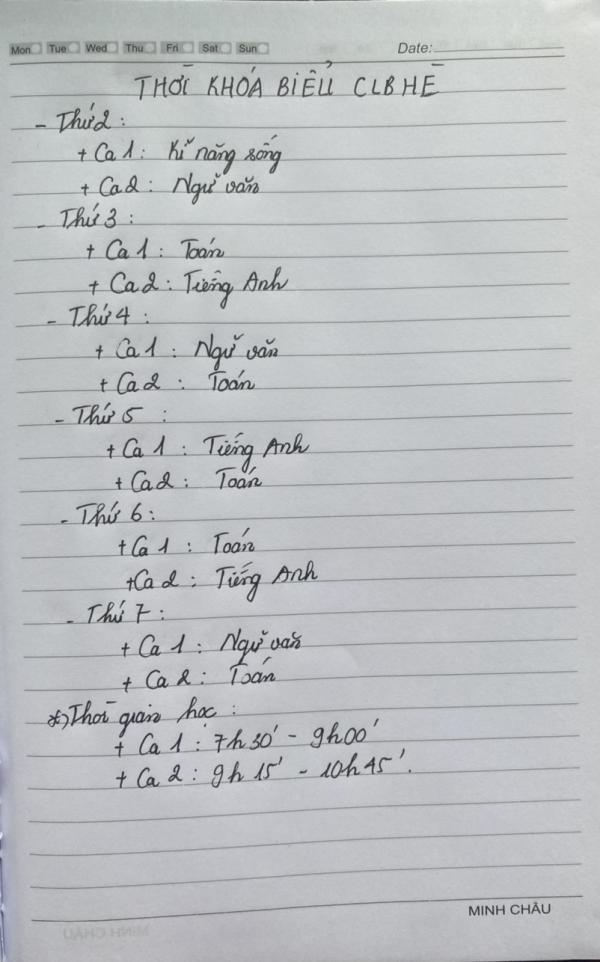 Mon Tue Wed Thu Fri Sat Sun Date:
THỜI KHÓA BIỂU CLB HÈ
- Thứ 2 :
+ Ca 1 : Kĩ năng sống
+ Ca 2 : Ngữ văn
- Thứ 3 :
+ Ca 1 : Toán
+ Ca 2 : Tiếng Anh
- Thứ 4 :
+ Ca 1 : Ngữ văn
+ Ca 2 : Toán
- Thứ 5 :
+ Ca 1 : Tiếng Anh
+ Ca 2 : Toán
- Thứ 6 :
+ Ca 1 : Toán
+ Ca 2 : Tiếng Anh
- Thứ 7 :
+ Ca 1 : Ngữ văn
+ Ca 2 : Toán
*) Thời gian học :
+ Ca 1 : 7h30' - 9h00'
+ Ca 2 : 9h15' - 10h45'.
MINH CHÂU